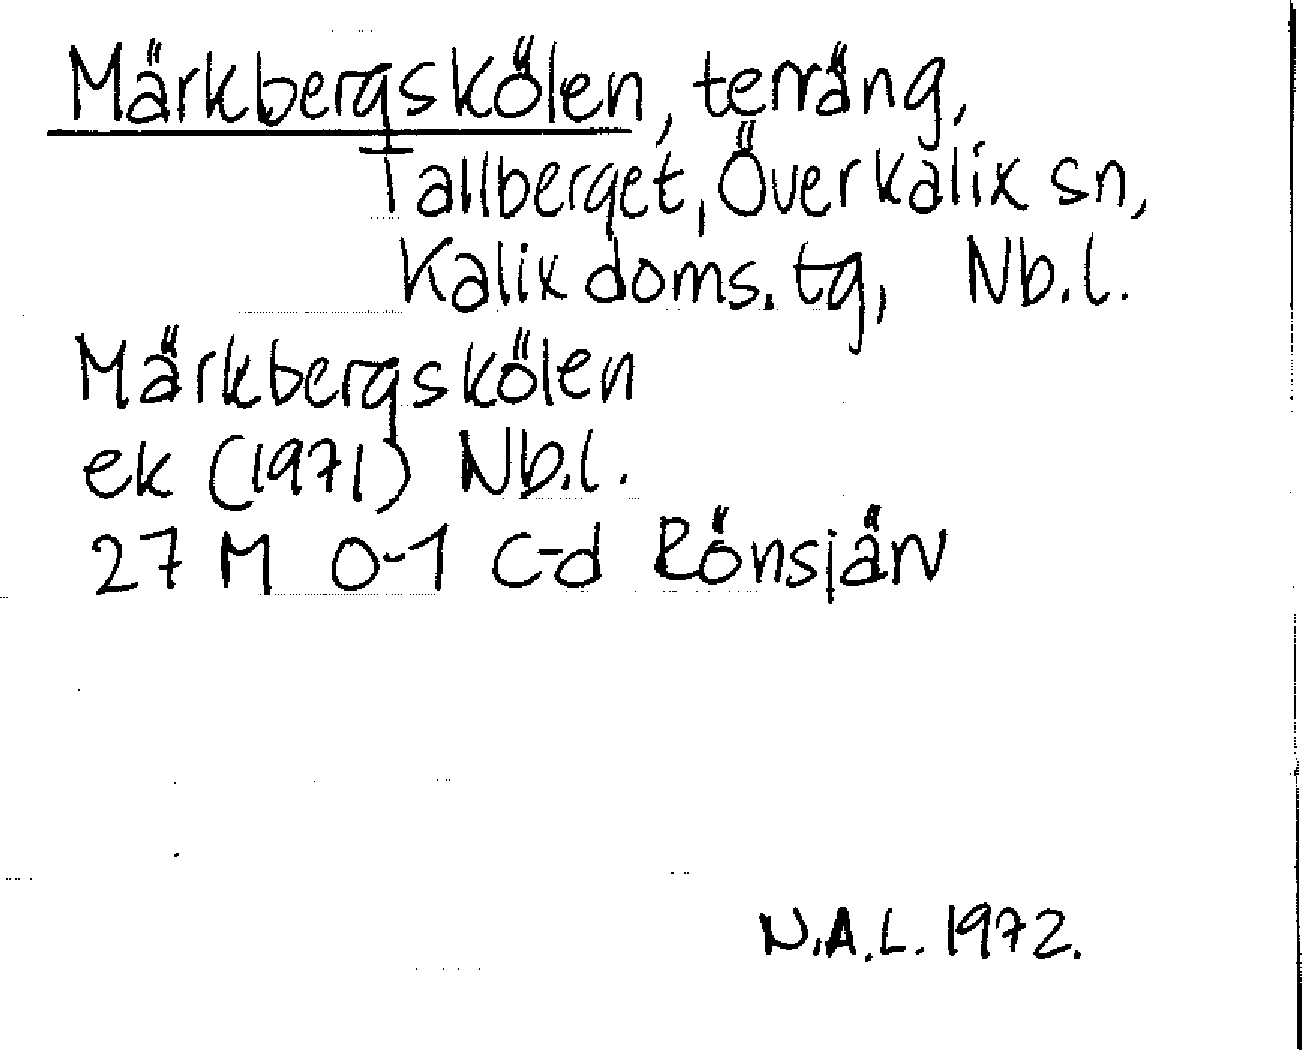 Märkbergskölen, terräng,
Tallberget, Överkalix sn,
Kalix doms. tg, Nb.l.
Märkbergskölen
ek (1971) Nb.l.
27 M 0-1 c-d Rönsjärv
N.A.L. 1972.